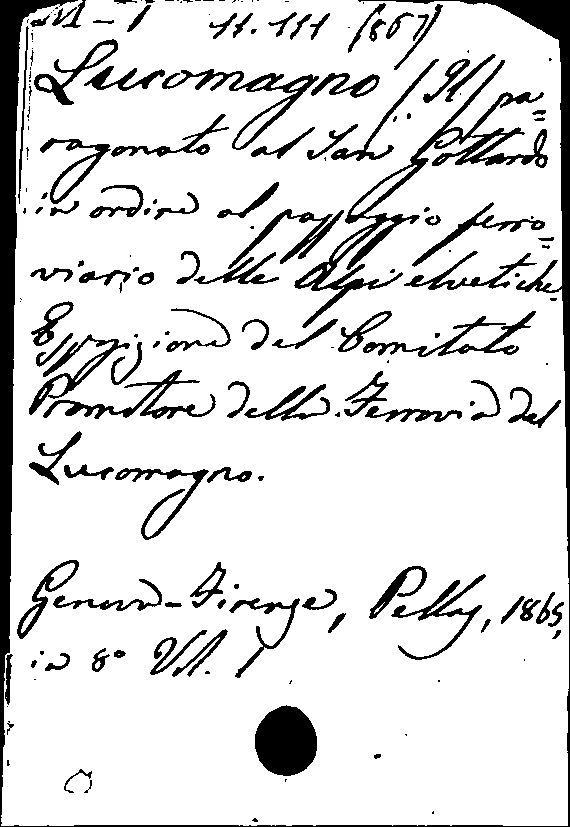 M - 1 11. 111 (867)
Lucomagno (Il) pa=
ragonato al San Gottardo
in ordine al passaggio ferro=
viario delle Alpi elvetiche.
Esposizione del Comitato
Promotore della Ferrovia del
Lucomagno.
Genova - Firenze, Pellas, 1865,
in 8° Vol. 1